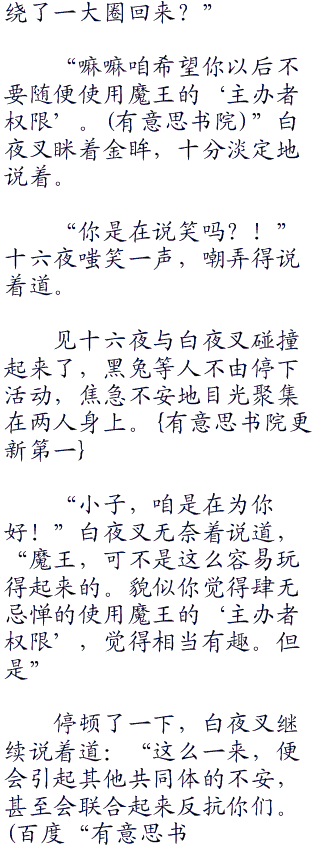 绕了一大圈回来？”
“嘛嘛咱希望你以后不
要随便使用魔王的‘主办者
权限’。(有意思书院)”白
夜叉眯着金眸，十分淡定地
说着。
“你是在说笑吗？！”
十六夜嗤笑一声，嘲弄得说
着道。
见十六夜与白夜叉碰撞
起来了，黑兔等人不由停下
活动，焦急不安地目光聚集
在两人身上。{有意思书院更
新第一}
“小子，咱是在为你
好！”白夜叉无奈着说道，
“魔王，可不是这么容易玩
得起来的。貌似你觉得肆无
忌惮的使用魔王的‘主办者
权限’，觉得相当有趣。但
是”
停顿了一下，白夜叉继
续说着道：“这么一来，便
会引起其他共同体的不安，
甚至会联合起来反抗你们。
(百度“有意思书